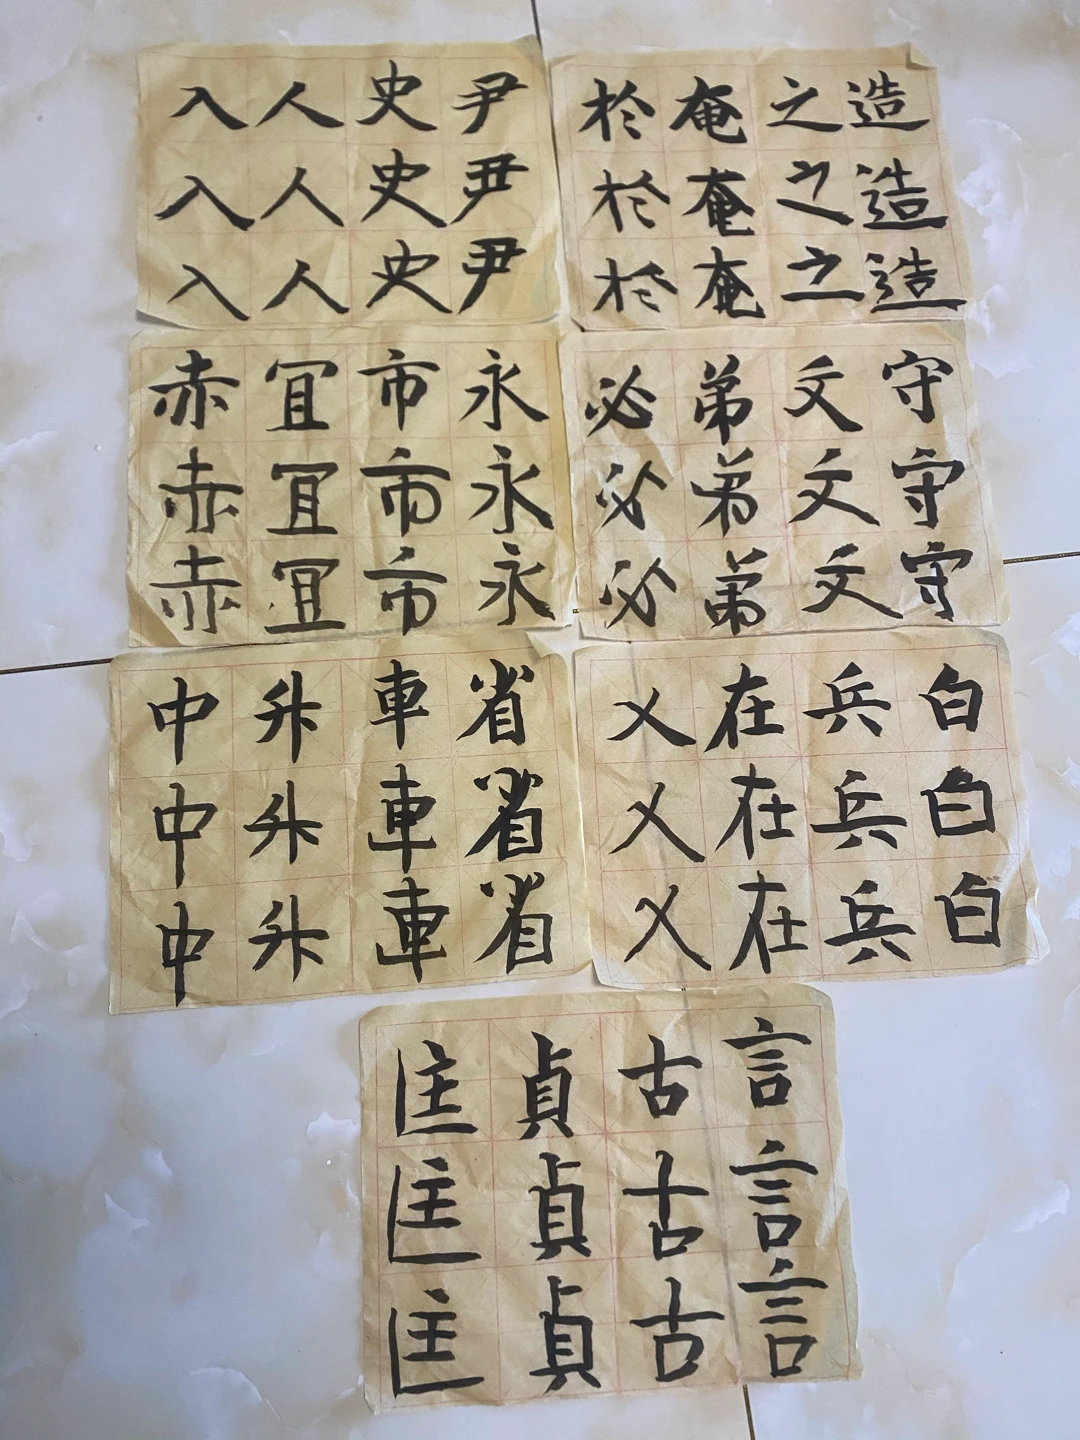 入人史尹
入人史尹
入人史尹
於奄之造
於奄之造
於奄之造
赤冝市永
赤冝市永
赤冝市永
必弟文守
必弟文守
必弟文守
中升車省
中升車省
中升車省
乂在兵白
乂在兵白
乂在兵白
匡貞古言
匡貞古言
匡貞古言